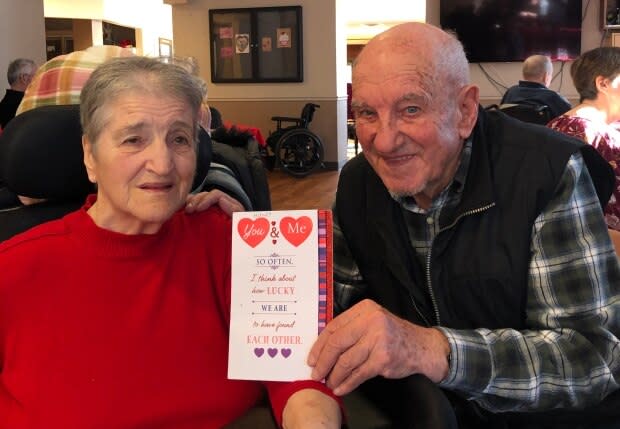 You & Me
SO OFTEN,
I think about
how LUCKY
WE ARE
to have found
EACH OTHER.